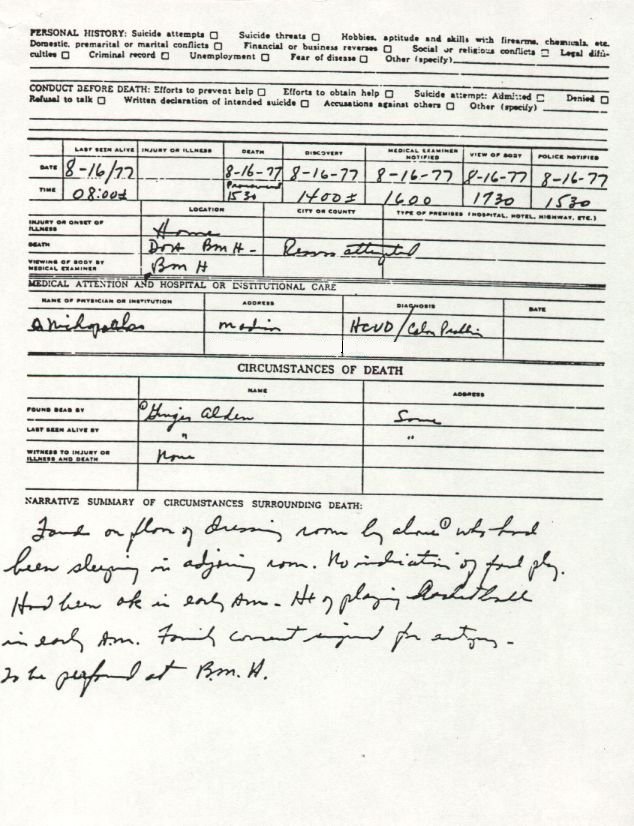 PERSONAL HISTORY: Suicide attempts □ Suicide threats □ Hobbies, aptitude and skills with firearms, chemicals, etc.
Domestic, premarital or marital conflicts □ Financial or business reverses □ Social or religious conflicts □ Legal diffi-
culties □ Criminal record □ Unemployment □ Fear of disease □ Other (specify)
CONDUCT BEFORE DEATH: Efforts to prevent help □ Efforts to obtain help □ Suicide attempt: Admitted □ Denied □
Refusal to talk □ Written declaration of intended suicide □ Accusations against others □ Other (specify)
LAST SEEN ALIVE INJURY OR ILLNESS DEATH DISCOVERY MEDICAL EXAMINER NOTIFIED VIEW OF BODY POLICE NOTIFIED
DATE 8-16/77 8-16-77 8-16-77 8-16-77 8-16-77 8-16-77
TIME 08:00± Pronounced 1530 1400± 1600 1730 1530
LOCATION CITY OR COUNTY TYPE OF PREMISES (HOSPITAL, HOTEL, HIGHWAY, ETC.)
INJURY OR ONSET OF ILLNESS Home
DEATH DOA BMH - Resus attempted
VIEWING OF BODY BY MEDICAL EXAMINER BMH
MEDICAL ATTENTION AND HOSPITAL OR INSTITUTIONAL CARE
NAME OF PHYSICIAN OR INSTITUTION ADDRESS DIAGNOSIS DATE
Nichopoulos Madison HCVD/Colon Problem
CIRCUMSTANCES OF DEATH
NAME ADDRESS
FOUND DEAD BY ① Ginger Alden Same
LAST SEEN ALIVE BY " "
WITNESS TO INJURY OR ILLNESS AND DEATH None
NARRATIVE SUMMARY OF CIRCUMSTANCES SURROUNDING DEATH:
Found on floor of dressing room by above ① who had
been sleeping in adjoining room. No indication of foul play.
Had been ok in early Am - Hx of playing Racketball
in early Am. Family consent signed for autopsy -
To be performed at B.M.H.